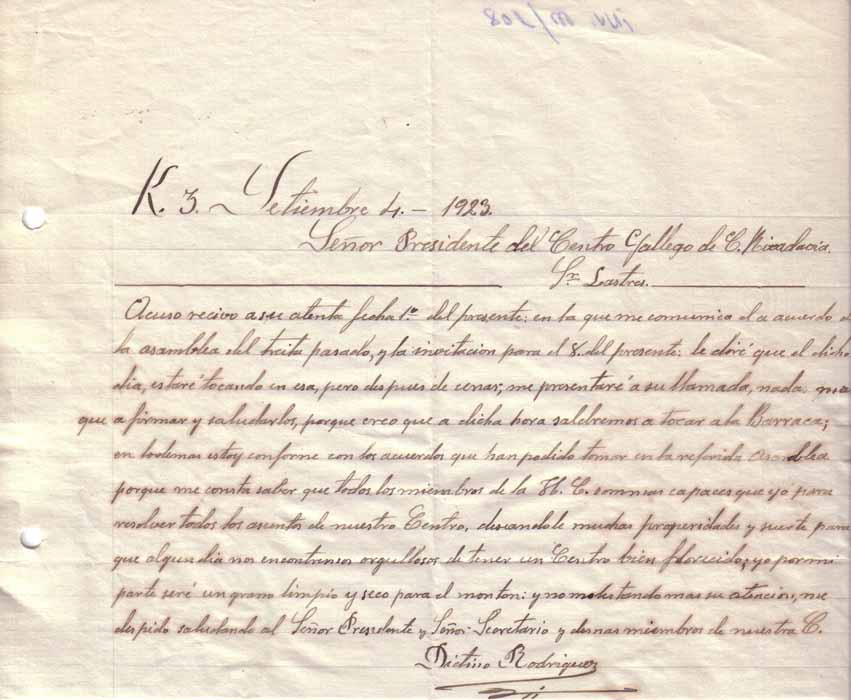 K. 3. Setiembre 4.- 1923.
Señor Presidente del Centro Gallego de C. Rivadavia.
Sr. Lastres.
Acuso recivo a su atenta fecha 1º del presente: en la que me comunica el acuerdo
la asamblea del treita pasado, y la invitacion para el 8. del presente: le diré que el dicho
dia, estaré tocando en esa, pero despues de cenar; me presentaré a su llamada, nada mas
que a firmar y saludarlos, porque creo que a dicha hora saldremos a tocar a la Barraca;
en lo demas estoy conforme con los acuerdos que han podido tomar en la referida asamblea
porque me consta saber que todos los miembros de la C. son mas capaces que yo para
resolver todos los asuntos de nuestro Centro, deseandole muchas prosperidades y suerte para
que algun dia nos encontramos orgullosos de tener un Centro bien florecido, yo por mi
parte seré un grano limpio y seco para el monton: y no molestando mas su atencion, me
despido saludando al Señor Presidente y Señor Secretario y demas miembros de nuestra C.
Dictino Rodriguez